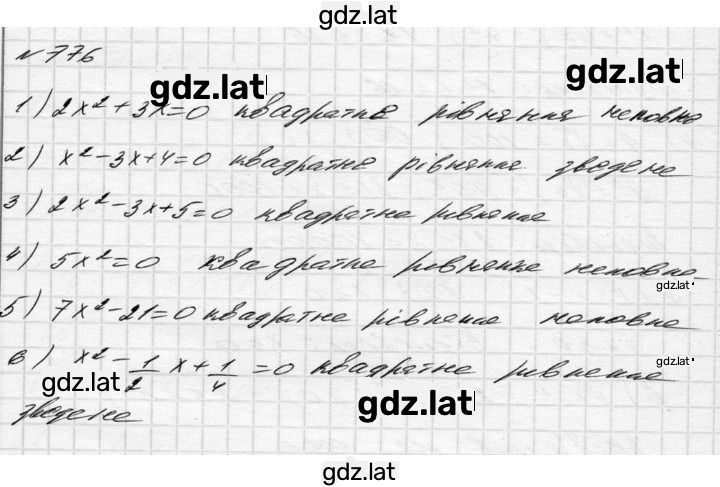 gdz.lat
№ 776
gdz.lat
gdz.lat
1) 2x² + 3x = 0 квадратне рівняння неповне
2) x² - 3x + 4 = 0 квадратне рівняння зведене
3) 2x² - 3x + 5 = 0 квадратне рівняння
4) 5x² = 0 квадратне рівняння неповне
gdz.lat
5) 7x² - 21 = 0 квадратне рівняння неповне
6) x² - 1/2 x + 1/4 = 0 квадратне рівняння
gdz.lat
gdz.lat
gdz.lat
зведене
gdz.lat